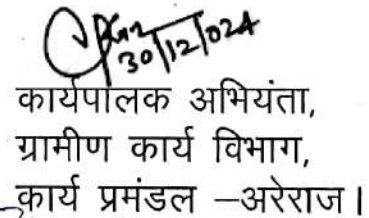 30/12/024
कार्यपालक अभियंता,
ग्रामीण कार्य विभाग,
कार्य प्रमंडल –अरेराज।